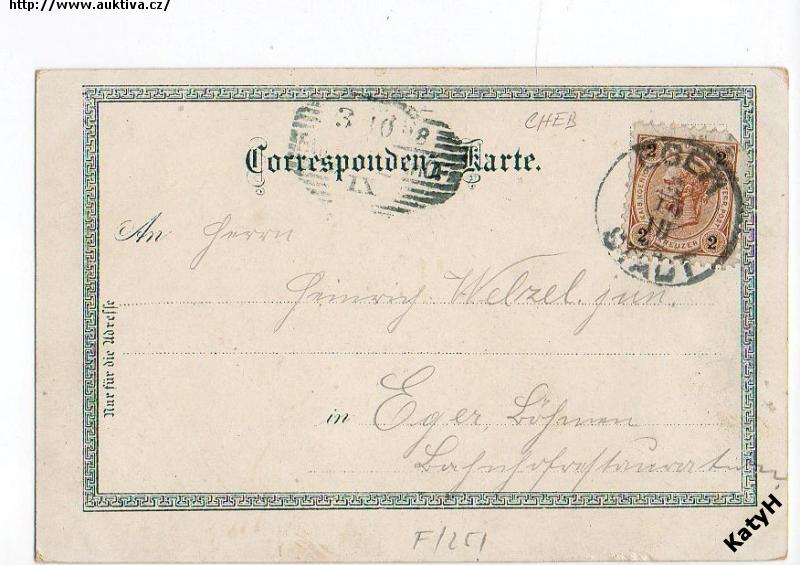 http://www.auktiva.cz/
CHEB
3 10 98
IX
Correspondenz-Karte.
2 2
KREUZER
2 2
EGER
STADT
An Herrn
Heinrich Welzel jun.
in Eger, Böhmen
Bahnhofrestauration
Nur für die Adresse
F/251
KatyH